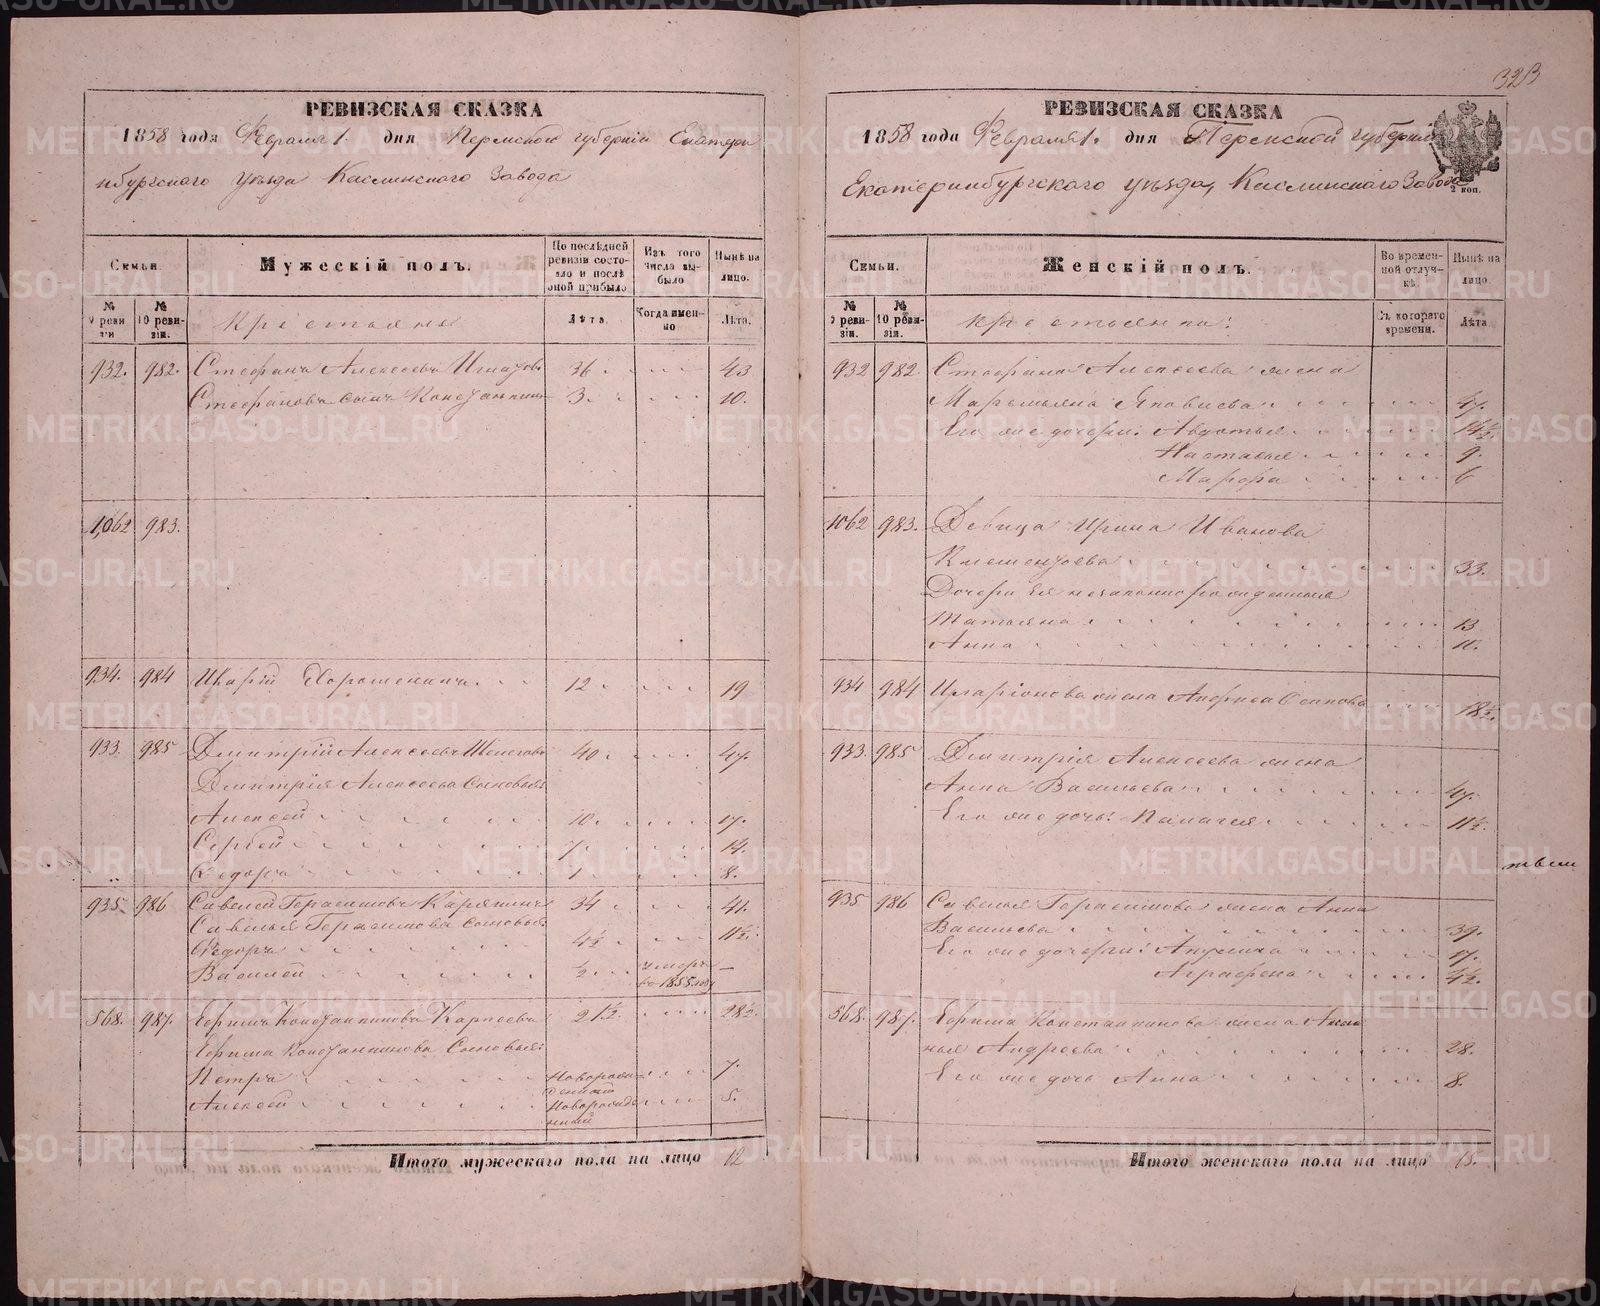 РЕВИЗСКАЯ СКАЗКА
1858 года Февраля 1. дня Пермской губерніи Екатери
нбургскаго уѣзда Каслинскаго Завода
Семьи.
Мужескій полъ.
По послѣдней ревизіи состояло и послѣ оной прибыло
Изъ того числа выбыло
Нынѣ на лицо.
№ 9 ревизіи
№ 10 ревизіи.
Крестьяны
Лѣта.
Когда именно
Лѣта.
932. 982. Стефанъ Алексѣевъ Игнатовъ 36 43
Стефановъ сынъ Константинъ 3 10.
1062 983.
934. 984 Иларій 12 19
933. 985 Дмитрій Алексѣевъ 40 47.
Дмитрія Алексѣева Сыновья:
Алексѣй 10. 17.
Сергѣй 7 14.
Ѳедоръ 1 8.
935 986 Савелей Герасимовъ 34 41.
Савелья Герасимова сыновья
Ѳедоръ 4½ 11½.
Василей ½ умеръ въ 1855 году —
568. 987. Ефимъ Константиновъ Карпеевъ 21½ 28½.
Ефима Константинова Сыновья:
Петръ Новорожденный 7.
Алексѣй Новорожденный 5.
Итого мужескаго пола на лицо 12
323
РЕВИЗСКАЯ СКАЗКА
1858 года Февраля 1. дня Пермской губерніи
Екатеринбургскаго уѣзда, Каслинскаго Завода
2 коп.
Семьи.
Женскій полъ.
Во временной отлучкѣ.
Нынѣ на лицо.
№ 9 ревизіи.
№ 10 ревизіи.
крестьянки:
Съ котораго времени.
Лѣта
932 982. Стефана Алексѣева жена
Маремьяна Яковлева 47.
Его же дочери: Авдотья 14½.
Настасья 9.
Марфа 6
1062 983. Девица Ирина Иванова
Клементьева 33.
Дочери Ея незаконнорожденныя
Татьяна 13
Анна 11.
934 984 Иларіонова жена Анфиса Осипова 18½.
933. 985 Дмитрія Алексѣева жена
Анна Васильева 47.
Его же дочь: Палагея 11½.
935 986 Савелья Герасимова жена Анна
Васильева 39.
Его же дочери: 17.
Аграфена 4½.
568. 987. Ефима Константинова жена
Андреева 28.
Его же дочь Анна 8.
Итого женскаго пола на лицо 15.
METRIKI.GASO-URAL.RU